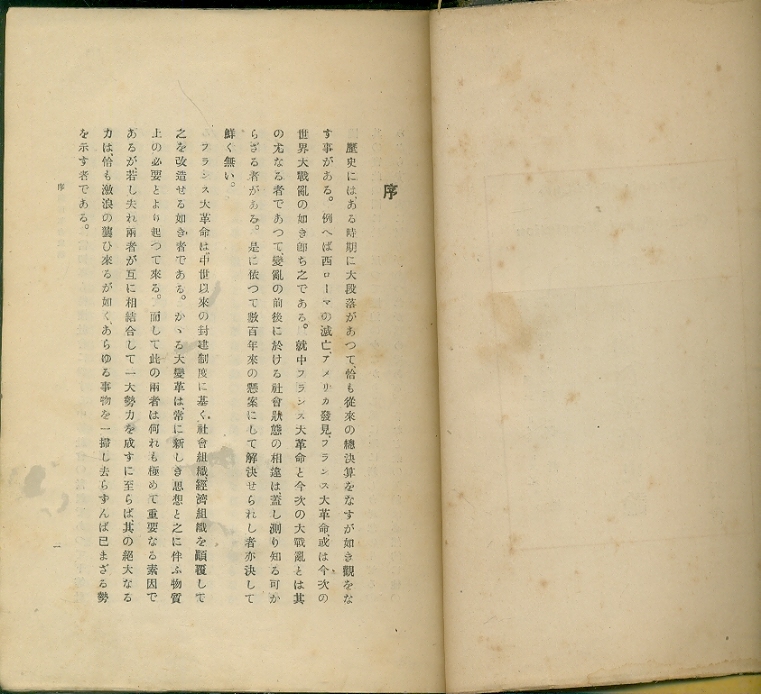 序
歷史には、ある時期に大段落があつて、恰も從來の總決算をなすが如き觀をな
す事がある。例へば西ローマの滅亡、アメリカ發見、フランス大革命、或は今次の
世界大戰亂の如き卽ち之である。就中フランス大革命と今次の大戰亂とは其
の尤なる者であつて、變亂の前後に於ける社會狀態の相違は、蓋し測り知る可か
らざる者がある。是に依つて數百年來の懸案にして解決せられし者亦決して
鮮く無い。
フランス大革命は、中世以來の封建制度に基く、社會組織、經濟組織を顚覆して
之を改造せる如き者である。かゝる大變革は、常に新しき思想と之に伴ふ物質
上の必要とより起つて來る。而して此の兩者は何れも極めて重要なる素因で
あるが若し夫れ兩者が互に相結合して一大勢力を成すに至らば、其の絕大なる
力は、恰も激浪の襲ひ來るが如く、あらゆる事物を一掃し去らずんば已まざる勢
を示す者である。
序
一